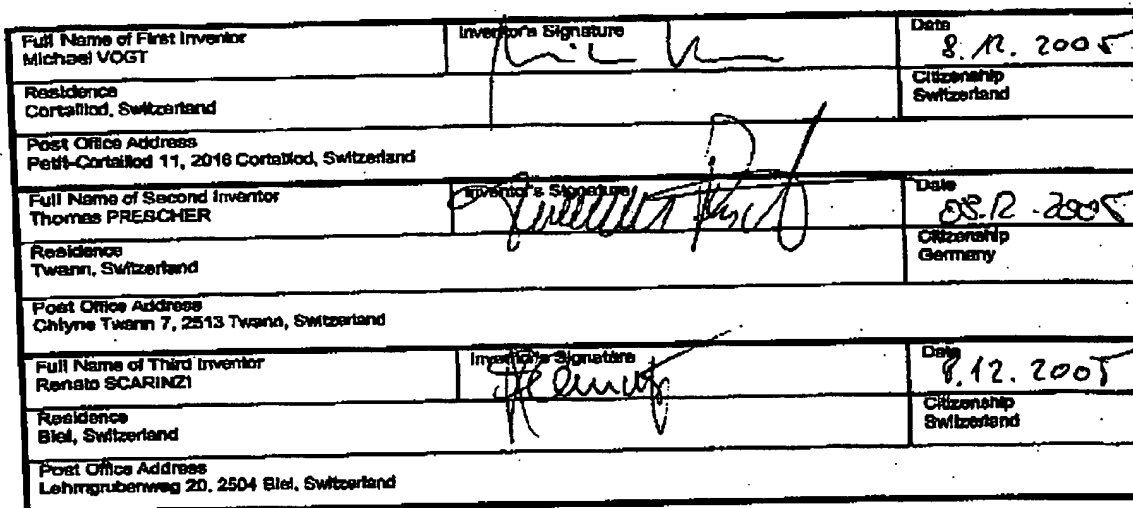 Full Name of First Inventor
Michael VOGT
Inventor's Signature
Date
8.12.2005
Residence
Cortaillod, Switzerland
Citizenship
Switzerland
Post Office Address
Petit-Cortaillod 11, 2016 Cortaillod, Switzerland
Full Name of Second Inventor
Thomas PRESCHER
Inventor's Signature
Date
08.12.2005
Residence
Twann, Switzerland
Citizenship
Germany
Post Office Address
Chlyne Twann 7, 2513 Twann, Switzerland
Full Name of Third Inventor
Renato SCARINZI
Inventor's Signature
Date
8.12.2005
Residence
Biel, Switzerland
Citizenship
Switzerland
Post Office Address
Lehmgrubenweg 20, 2504 Biel, Switzerland